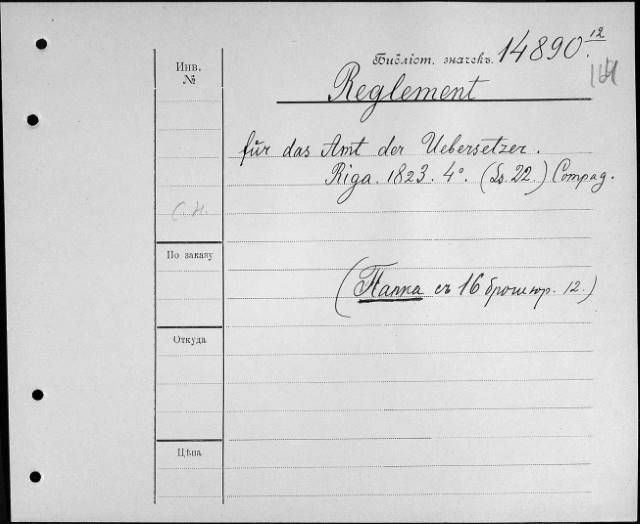 Библіот. значекъ. 14890.¹²
Инв.
№
Reglement
für das Amt der Uebersetzer.
Riga. 1823. 4°. (22.) Compag.
С. Н.
По заказу
(Папка съ 16 брошюр. 12.)
Откуда
Цѣна